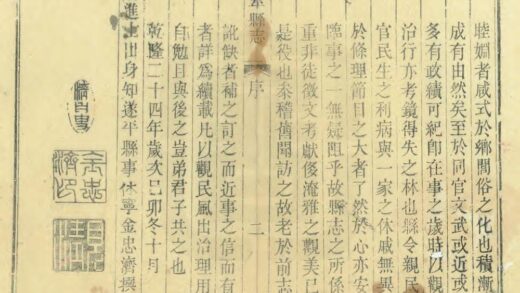 睦婣者咸式於鄉閭俗之化也積漸
成有由然矣至於同官文武或近或
多有政績可紀卽在事之歲時以觀
治行亦考鏡得失之林也縣令親民
官民生之利病與一家之休戚無異
於條理節目之大者了然於心亦安
臨事之一無疑阻乎故縣志之所係
重非徒徵文考獻後淹雅之觀美已
是役也叅稽舊聞訪之故老於前志
縣志 序 二
訛缺者補之訂之而近事之信而有
者詳爲續載凡以觀民風出治理用
自勉且與後之豈弟君子共之也
乾隆二十四年歲次己卯冬十月
進士出身知遂平縣事休寧金忠濟撰
金忠濟印